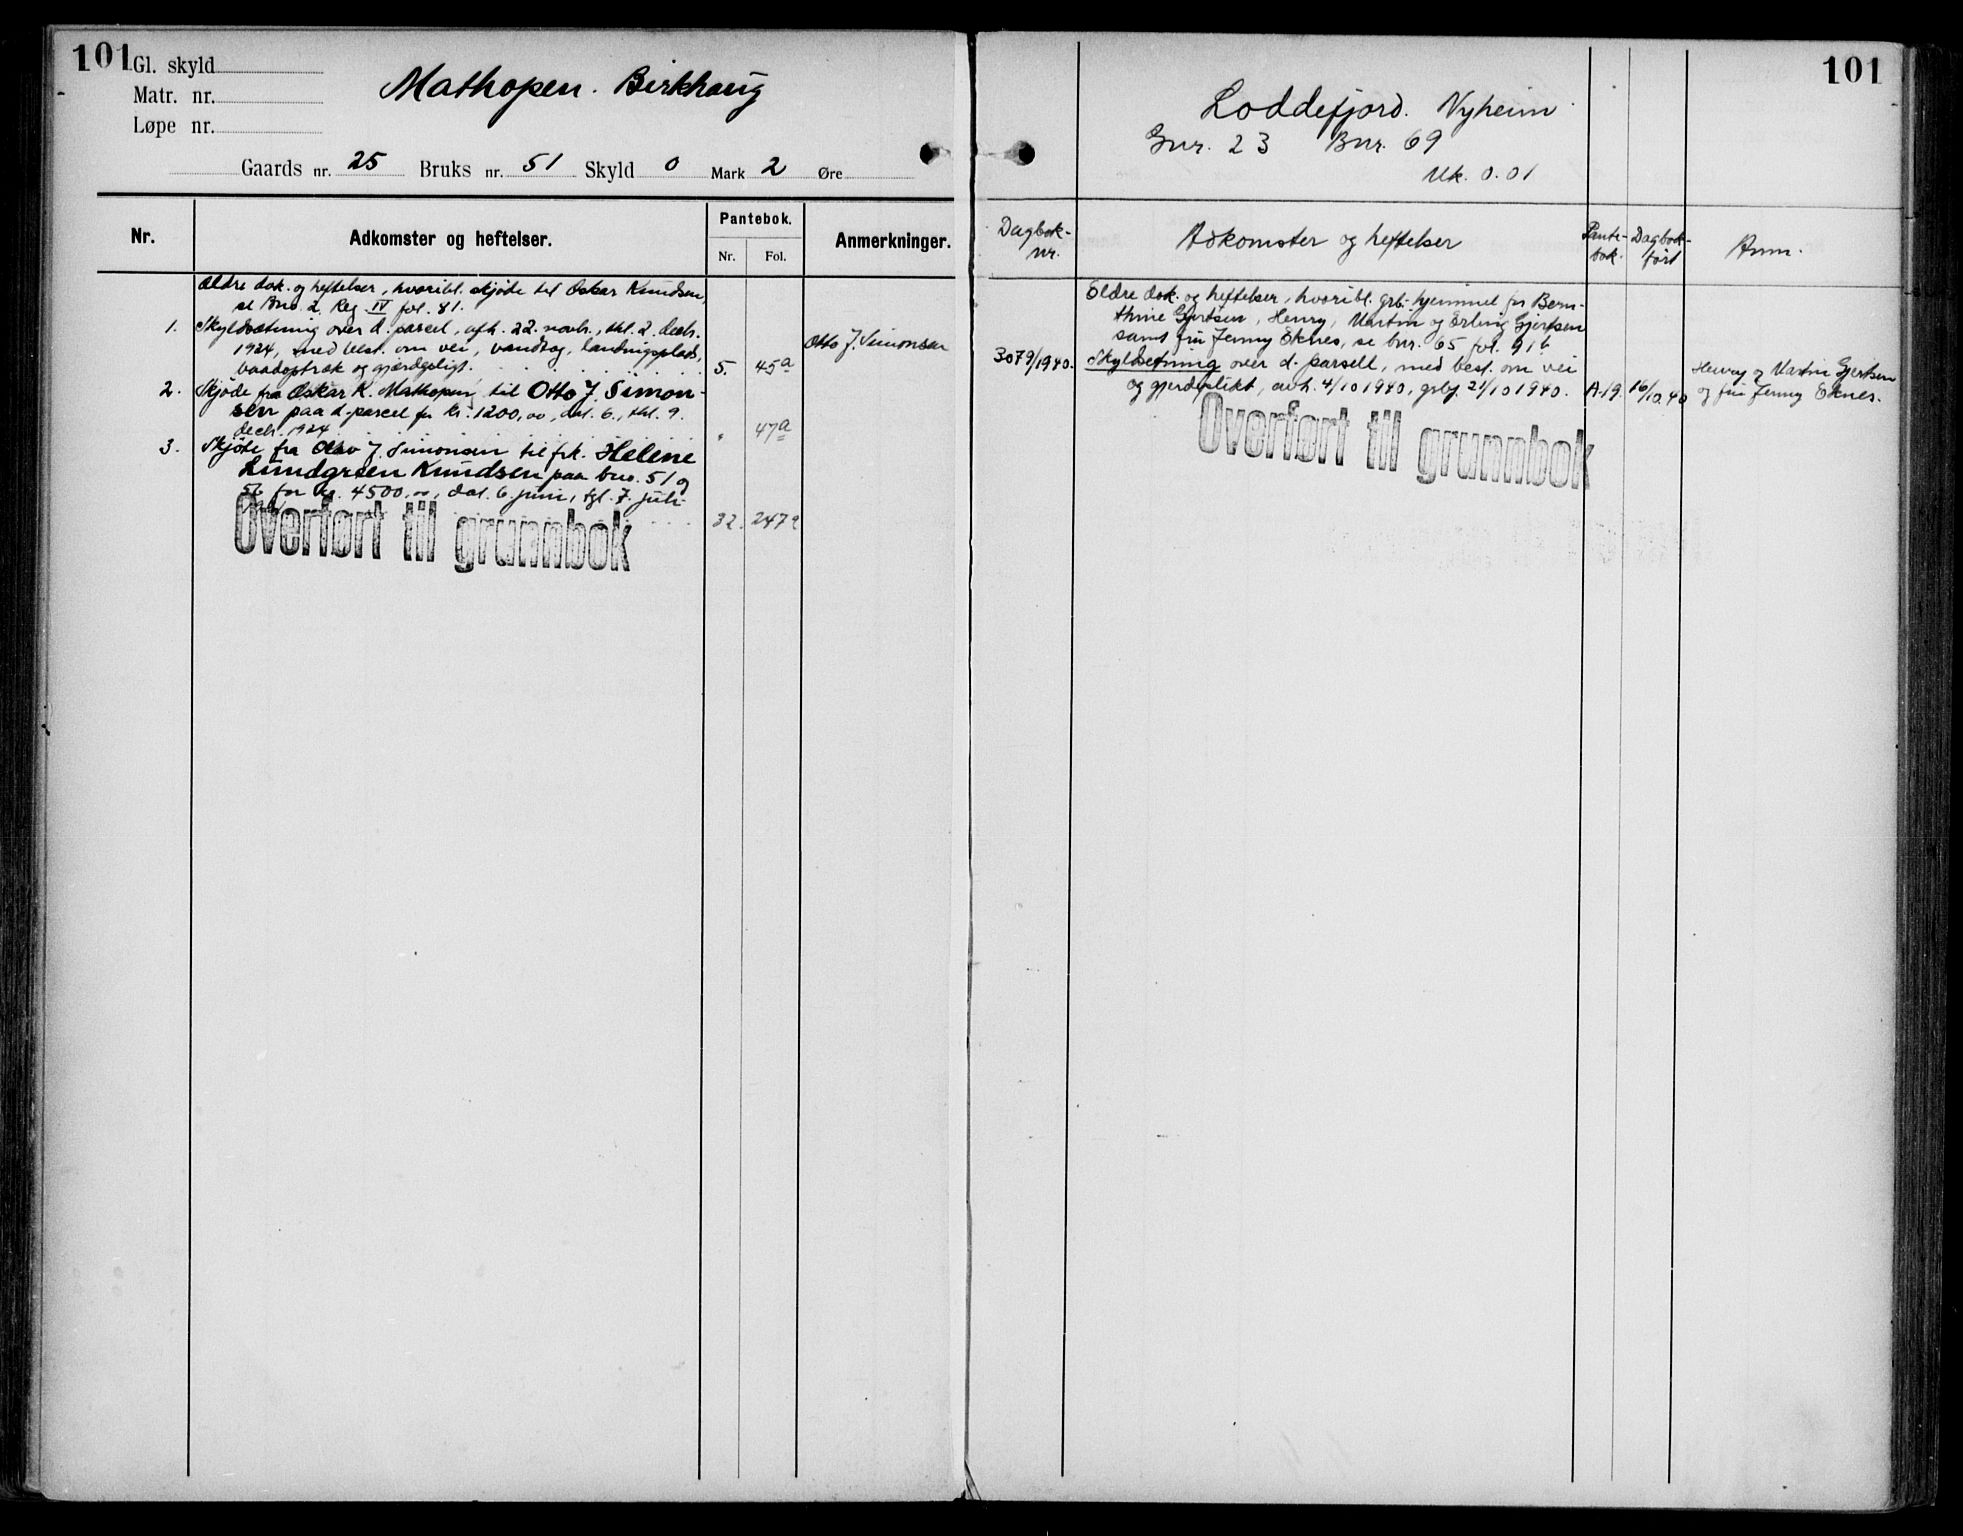 101
Gl. skyld
Matr. nr.
Løpe nr.
Mathopen. Birkhaug
Gaards nr. 25 Bruks nr. 51 Skyld 0 Mark 2 Øre
Nr.
Adkomster og heftelser.
Pantebok.
Nr. Fol.
Anmerkninger.
Ældre dok. og heftelser, hvoribl. skjøde til Oskar Knudsen,
se Bno. 2, Reg IV fol. 81.
1. Skyldsætning over d. parcel, afh. 22. novbr., thl. 2. decbr.
1924, med best. om vei, vandtog, landingsplads,
baadoptræk og gjærdepligt. 5. 45a
Otto J. Simonsen
2. Skjøde fra Oskar K. Mathopen, til Otto J. Simon-
sen paa d. parcel for kr. 1200,00, dat. 6., thl. 9.
decbr. 1924 " 47a
3. Skjøte fra Otto J. Simonsen til frk. Helene
Lundgreen Knudsen paa bno. 51 og
56 for kr. 4500,00, dat. 6. juni, tgl. 7. juli
32. 247a
Overført til grunnbok
101
Loddefjord. Nyheim
Gnr. 23 Bnr. 69
Mk. 0.01
Dagbok-
nr.
Adkomster og heftelser
Pante-
bok.
Dagbok-
ført
Anm.
Eldre dok. og heftelser, hvoribl. grb. hjemmel for Bern-
thine Gjertsen, Henry, Martin og Erling Gjertsen
samt fru Jenny Eknes, se bnr. 65 fol. 91b
3079/1940. Skyldsetning over d. parsell, med best. om vei
og gjerdeplikt, avh. 4/10 1940, grbf 21/10 1940. A.19. 16/10.40
Henry og Martin Gjertsen
og fru Jenny Eknes.
Overført til grunnbok